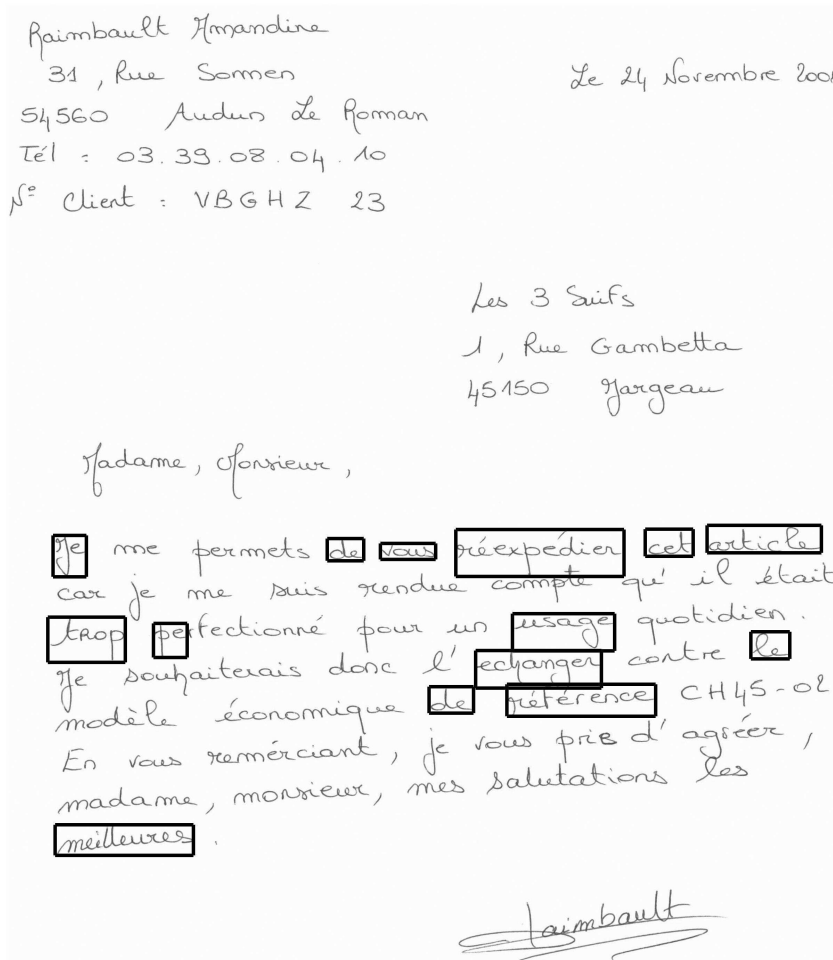 Raimbault Amandine
31, Rue Sommen
Le 24 Novembre
54560 Audun Le Roman
Tél : 03.39.08.04.10
N° Client : VBGHZ 23
Les 3 Suifs
1, Rue Gambetta
45150 Jargeau
Madame, Monsieur,
Je me permets de vous réexpédier cet article
car je me suis rendue compte qu'il était
trop perfectionné pour un usage quotidien.
Je souhaiterais donc l'echanger contre le
modèle économique de référence CH45-02
En vous remérciant, je vous prie d'agréer,
madame, monsieur, mes salutations les
meilleures.
Raimbault